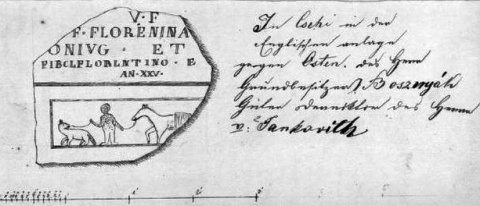 V · F
F · FLORENINA
ONIVG · ET
FIBCLFLORENTINO · E
AN · XXV ·
In Cseki in der
Englischen anlage
gegen Osten. des Herrn
Grundbesitzers Bosznyák
des Herrn
v: Jankovith